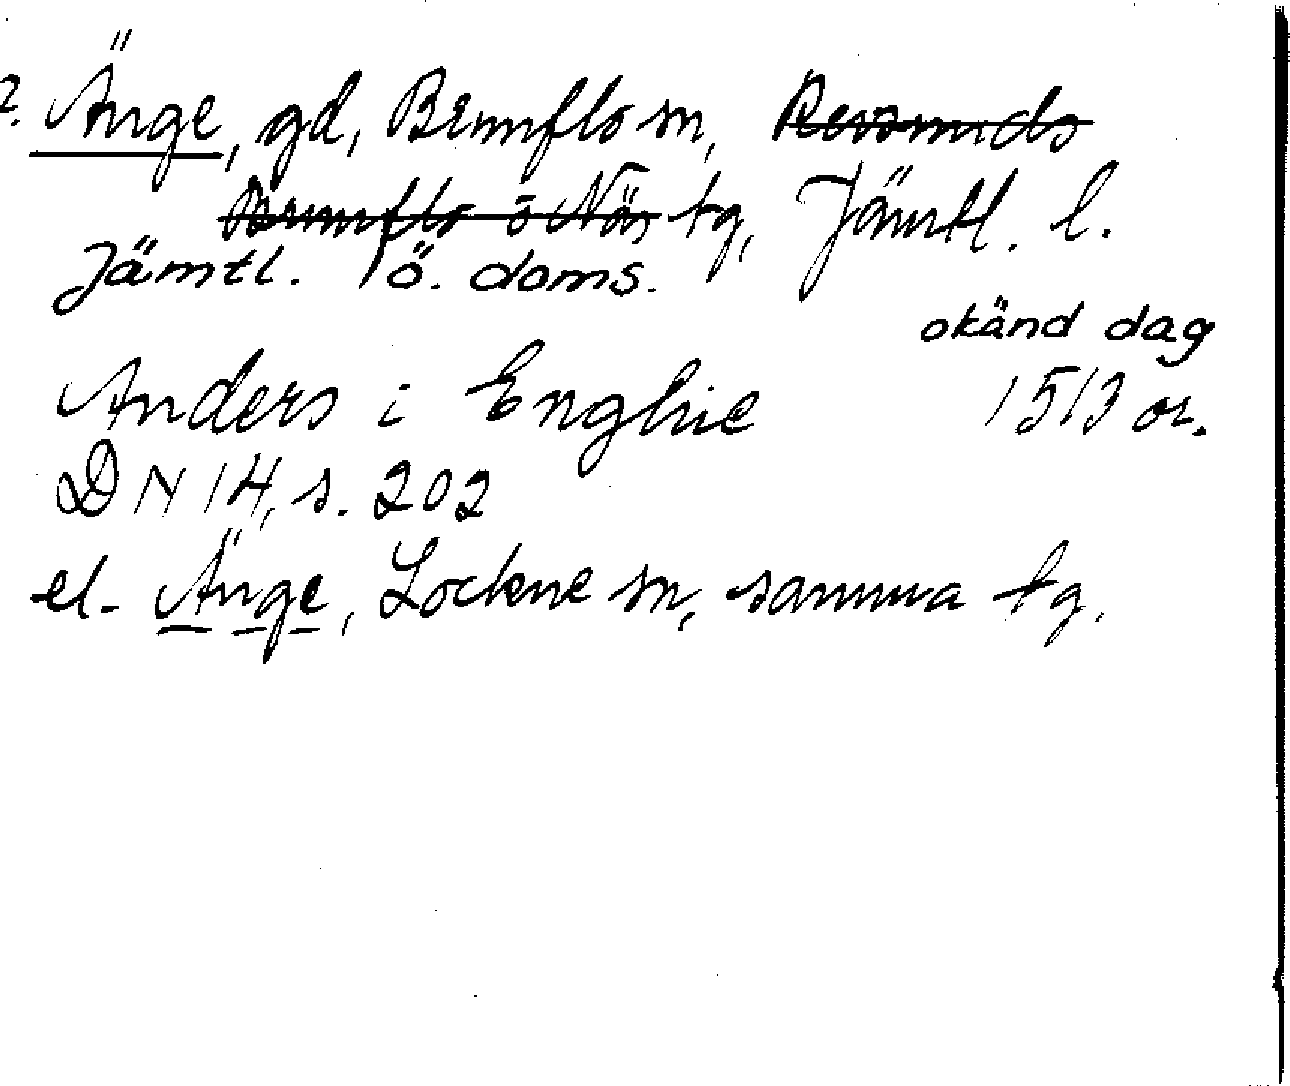 2. Änge, gd, Brunflo sn, Revsunds
Brunflo o Näs tg, Jämtl. l.
Jämtl. ö. doms.
okänd dag
Anders i Enghie 1513 or.
DN 14, s. 202
el. Änge, Lockne sn, samma tg.